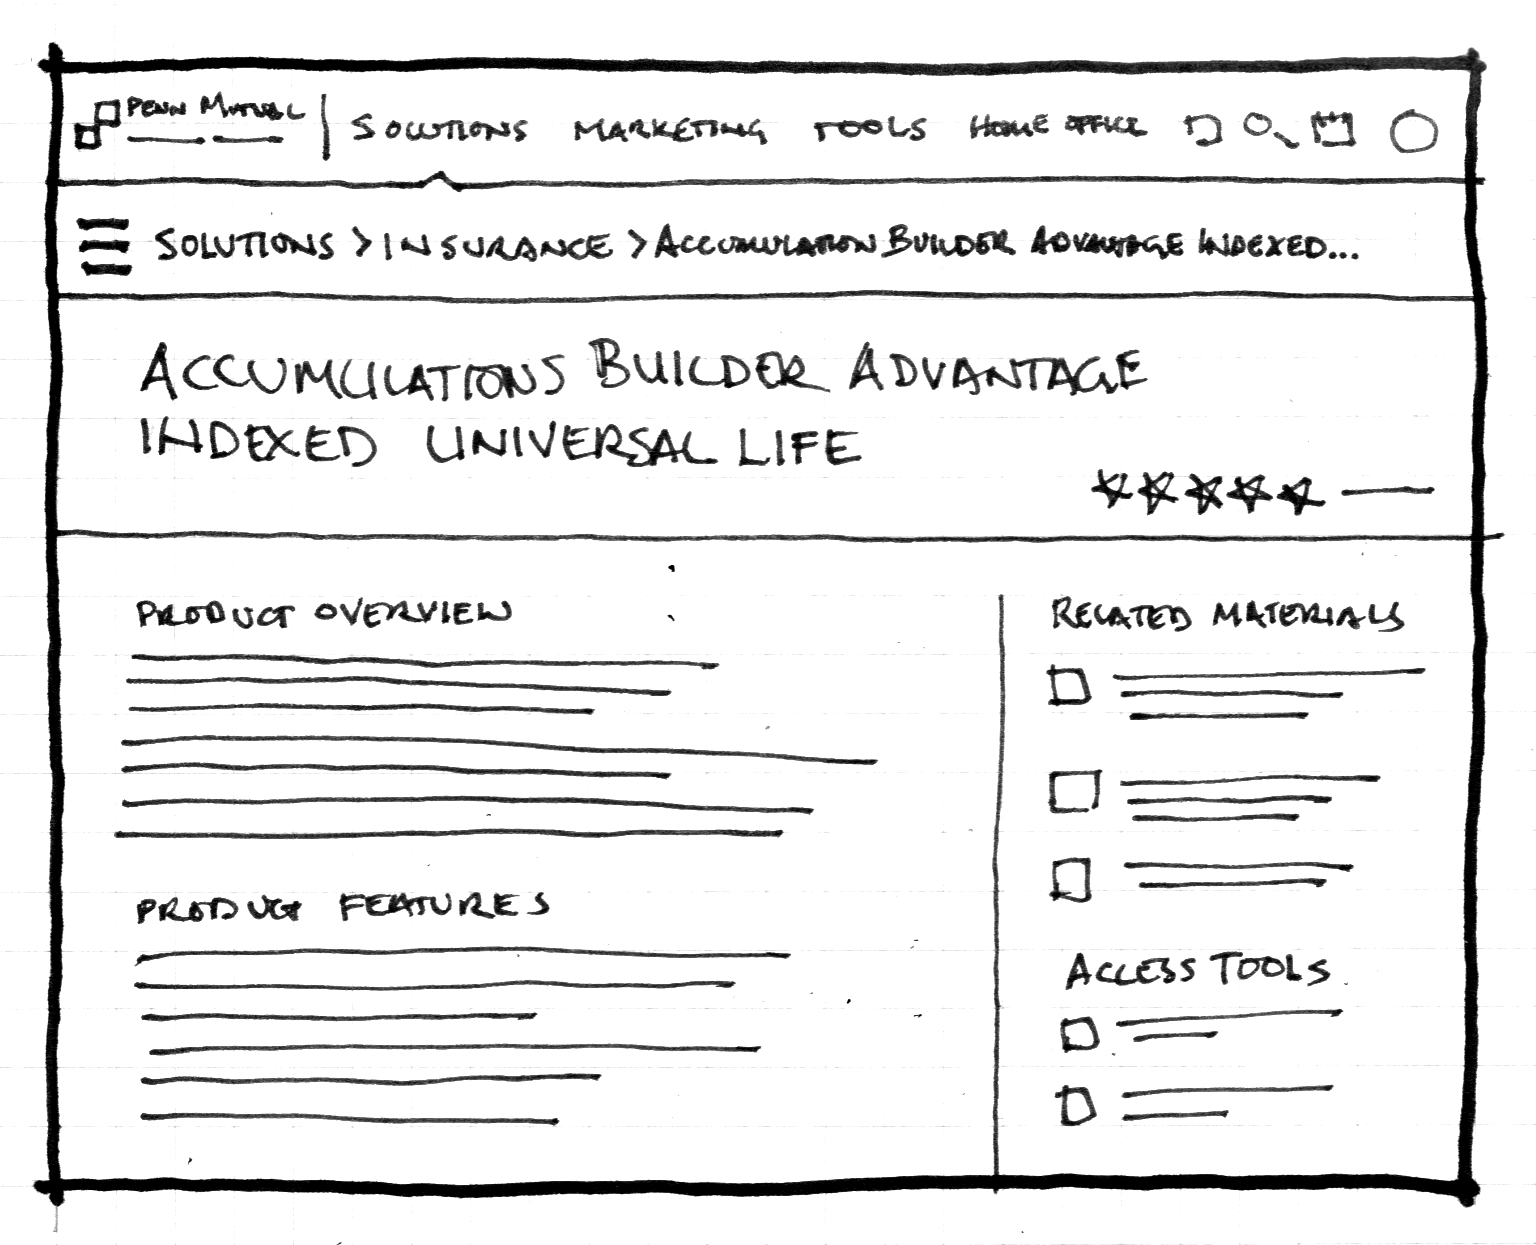 PENN MUTUAL
SOLUTIONS MARKETING TOOLS HOME OFFICE
SOLUTIONS > INSURANCE > ACCUMULATION BUILDER ADVANTAGE INDEXED...
ACCUMULATIONS BUILDER ADVANTAGE
INDEXED UNIVERSAL LIFE
PRODUCT OVERVIEW
PRODUCT FEATURES
RELATED MATERIALS
ACCESS TOOLS